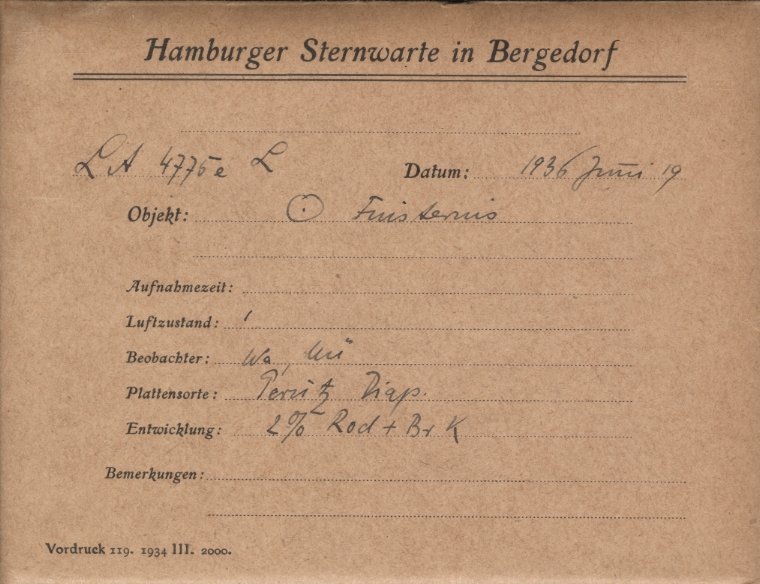 Hamburger Sternwarte in Bergedorf
LA 4775e L Datum: 1936 Juni 19
Objekt: ☉ Finsternis
Aufnahmezeit:
Luftzustand: 1
Beobachter: Wa, Mü
Plattensorte: Perutz Diap.
Entwicklung: 2% Rod + Br K
Bemerkungen:
Vordruck 119. 1934 III. 2000.